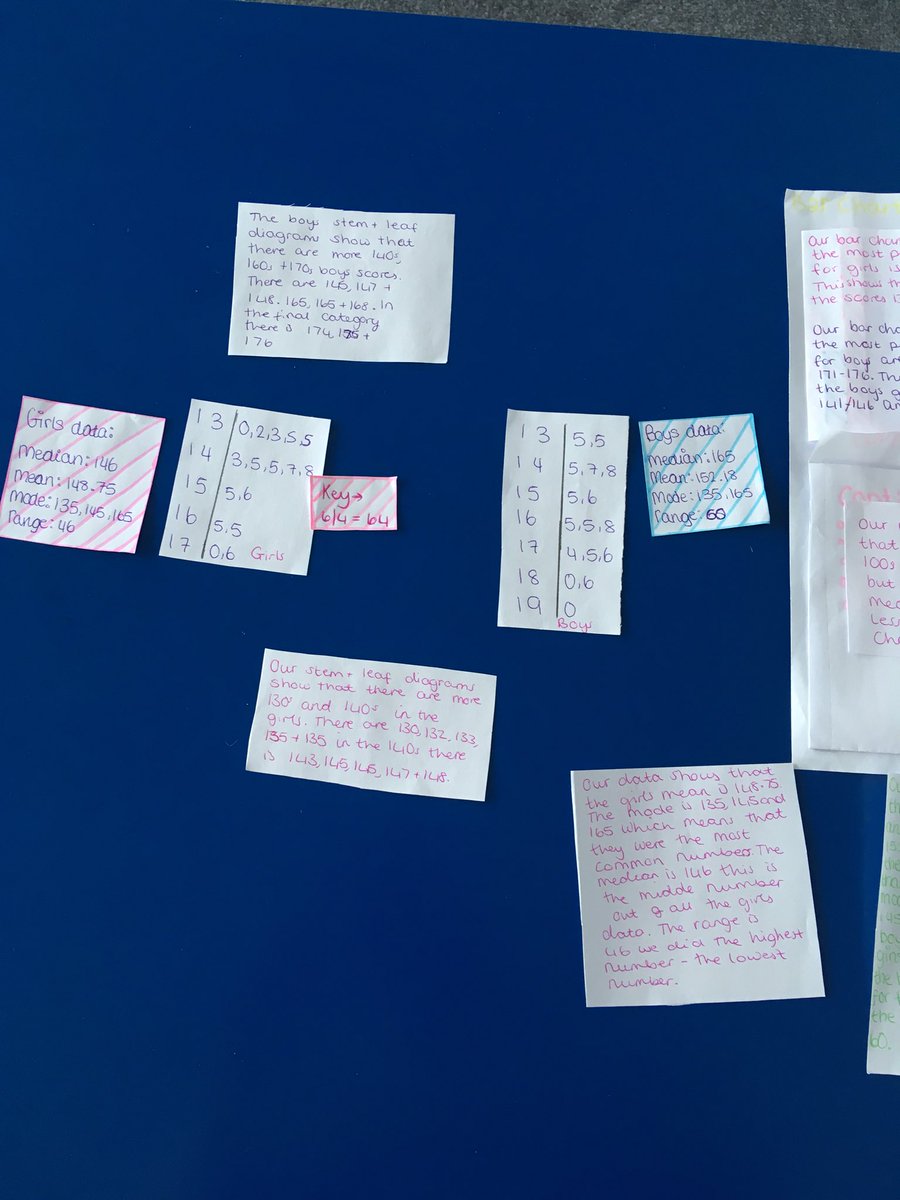 The boys stem + leaf
diagrams show that
there are more 140s,
160s +170s boys scores.
There are 145, 147 +
148. 165, 165 + 168. In
the final category
there is 174, 175 +
176
Girls data:
median: 146
Mean: 148.75
Mode: 135, 145, 165
range: 46
13 0,2,3,5,5
14 3,5,5,7,8
15 5,6
16 5,5
17 0,6 Girls
Key→
16/4 = 164
13 5,5
14 5,7,8
15 5,6
16 5,5,8
17 4,5,6
18 0,6
19 0
Boys
Boys data:
Median: 165
Mean: 152.18
Mode: 135, 165
range: 60
Our stem + leaf diagrams
show that there are more
130s and 140s in the
girls. There are 130, 132, 133,
135 + 135 in the 140s there
is 143, 145, 145, 147 + 148.
Our data shows that
the girls mean is 148.75.
The mode is 135, 145 and
165 which means that
they were the most
common numbers. The
median is 146 this is
the middle number
out of all the girls
data. The range is
46 we did the highest
number - the lowest
number.
Bar Chart
Our bar char
the most p
for girls is
This shows th
the scores
Our bar cha
the most p
for boys ar
171-176. Th
the boys g
141/146 an
Our
that
100s
but
Mea
Less
Cha
60.